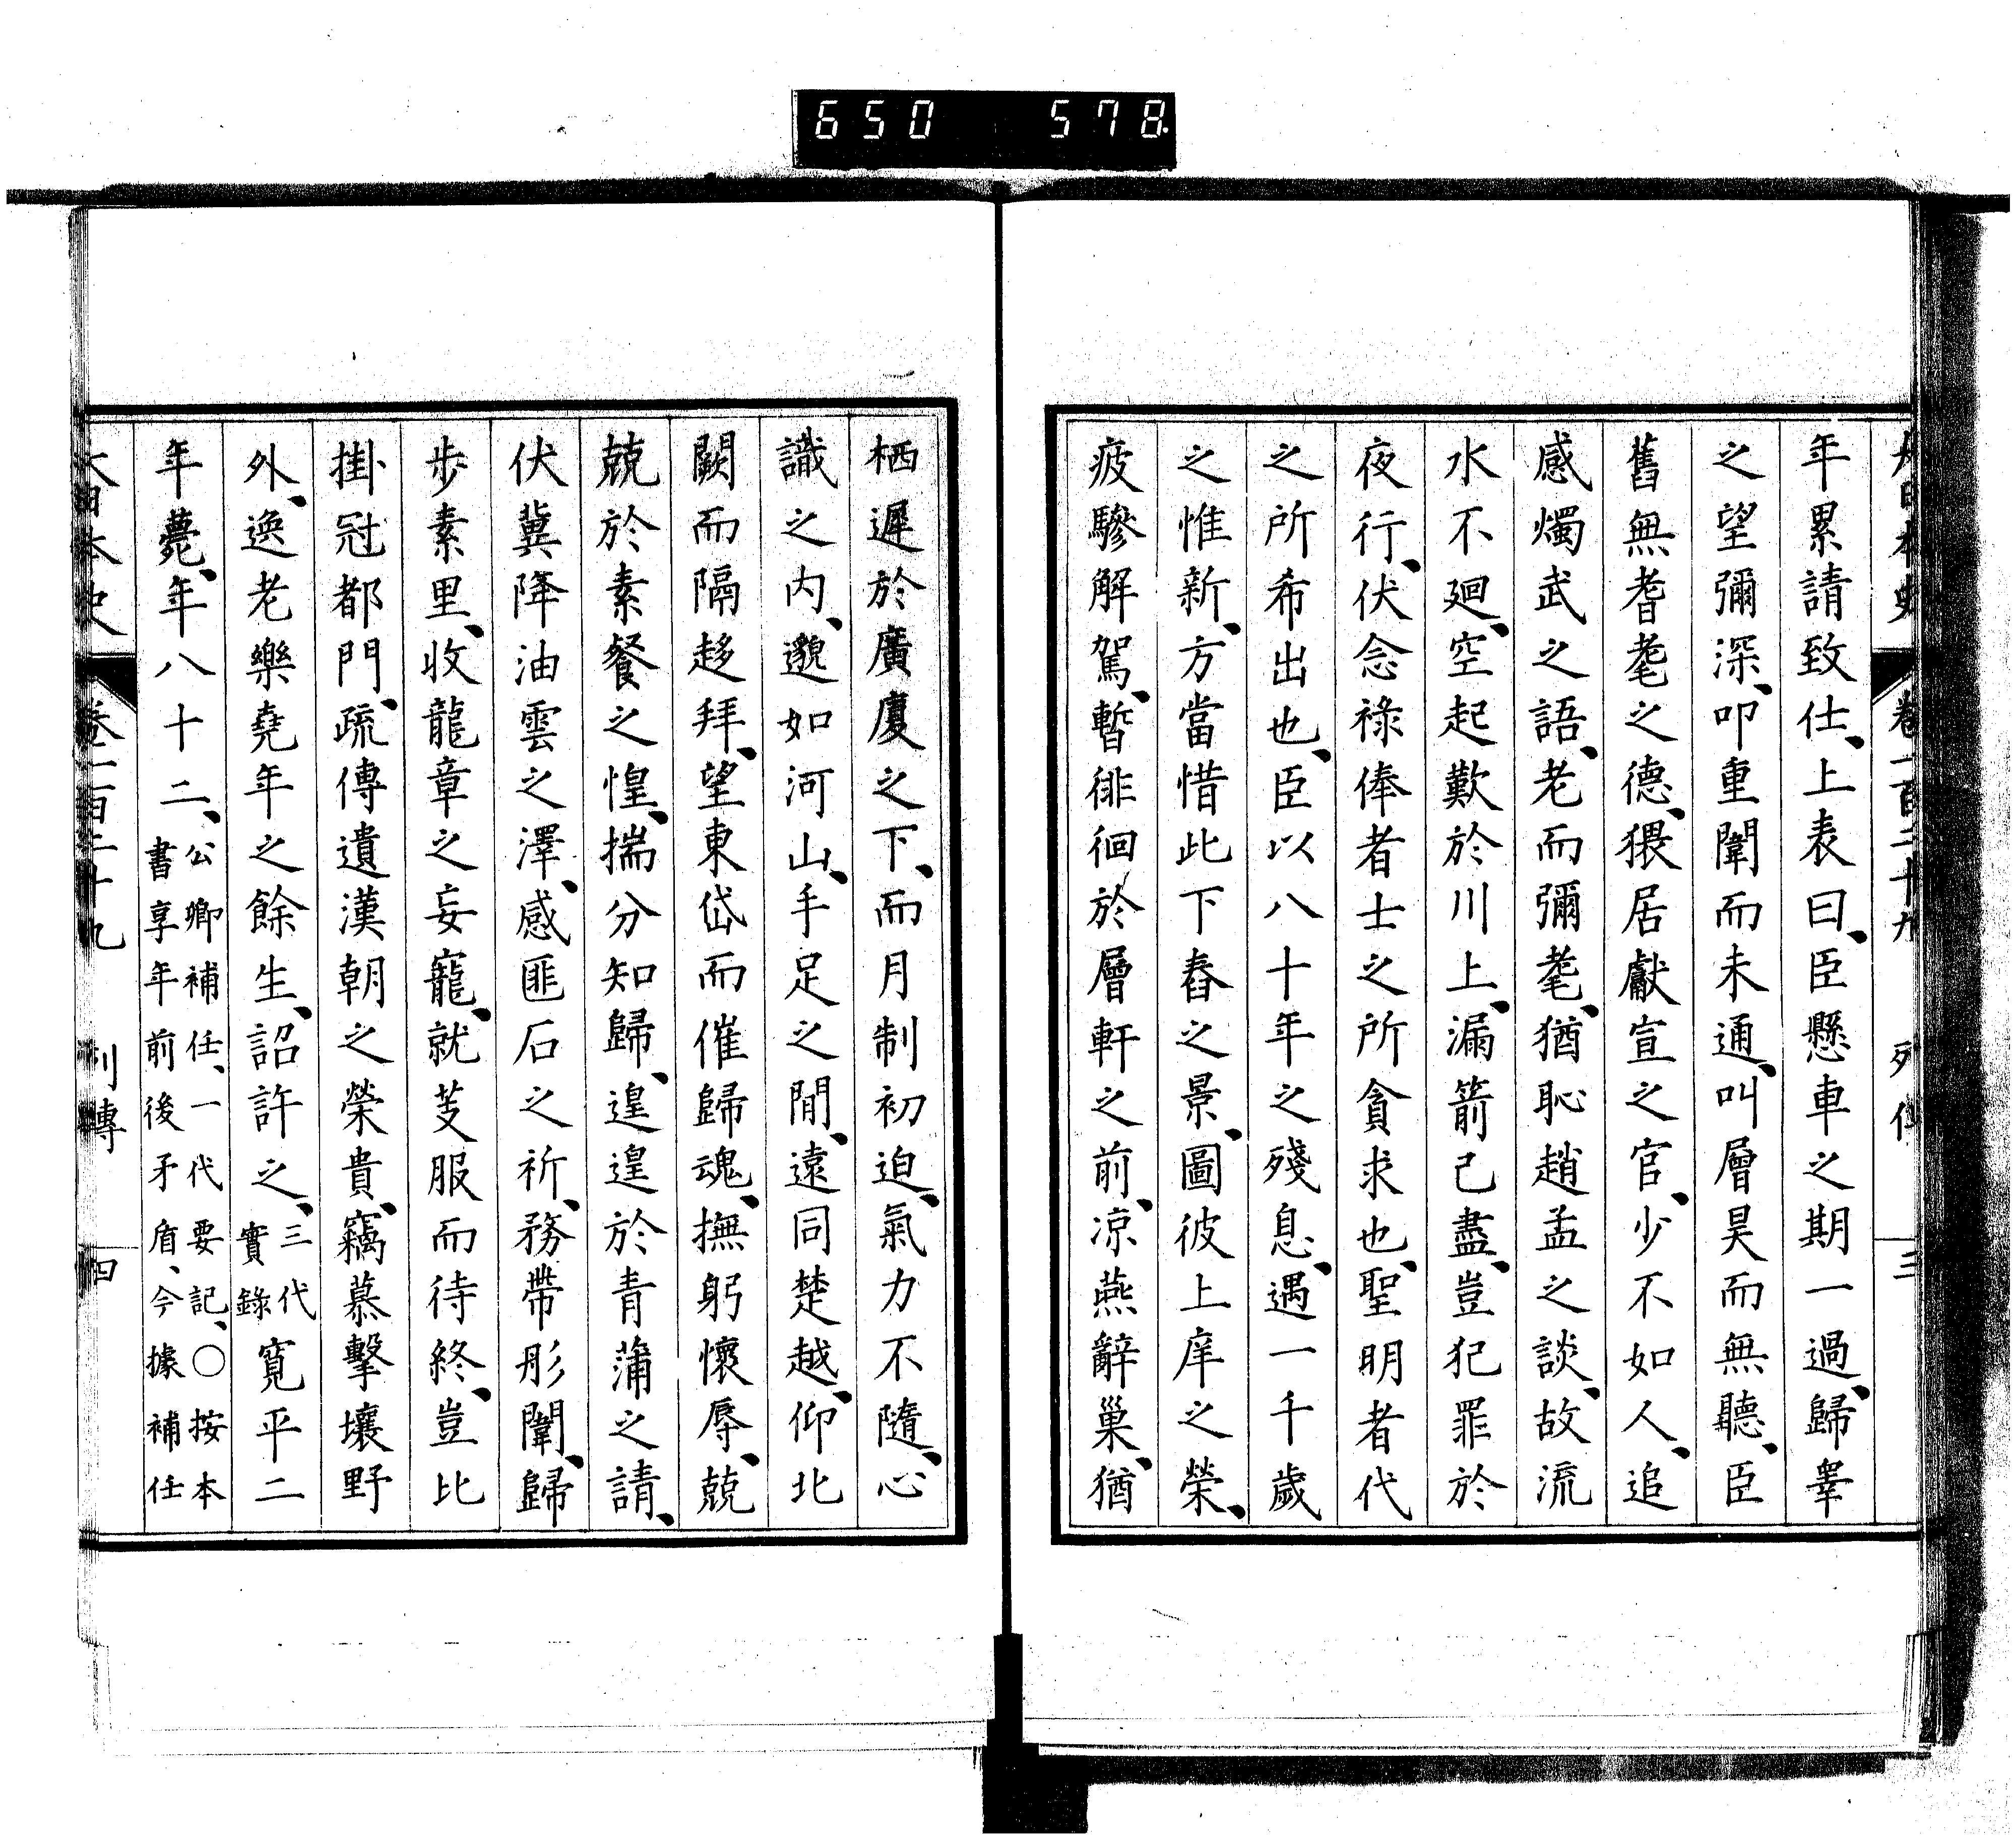 650 578.
大日本史 卷一百二十九 列傳 三
年累請致仕、上表曰、臣懸車之期一過、歸睾
之望彌深、叩重闈而未通、叫層昊而無聽、臣
舊無耆耄之德、猥居獻宣之官、少不如人、追
感燭武之語、老而彌耄、猶恥趙孟之談、故流
水不廻、空起歎於川上、漏箭已盡、豈犯罪於
夜行、伏念祿俸者士之所貪求也、聖明者代
之所希出也、臣以八十年之殘息、遇一千歲
之惟新、方當惜此下舂之景、圖彼上庠之榮、
疲驂解駕、暫徘徊於層軒之前、凉燕辭巢、猶
栖遲於廣廈之下、而月制初迫、氣力不隨、心
識之內、邈如河山、手足之間、遠同楚越、仰北
闕而隔趍拜、望東岱而催歸魂、撫躬懷辱、兢
兢於素餐之惶、揣分知歸、遑遑於青蒲之請、
伏冀降油雲之澤、感匪石之祈、務帶彤闈、歸
步素里、收龍章之妄寵、就芰服而待終、豈比
掛冠都門、疏傳遺漢朝之榮貴、竊慕擊壤野
外、逸老樂堯年之餘生、詔許之、三代實錄寬平二
年薨、年八十二、公卿補任、一代要記、○按本書享年前後矛盾、今據補任
大日本史 卷一百二十九 列傳 四